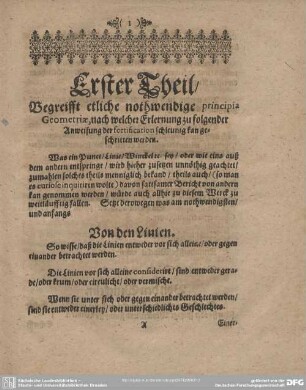 ( 1 )
Erster Theil/
Begreifft etliche nothwendige principia
Geometriæ, nach welcher Erlernung zu folgender
Anweisung der fortification schleunig kan ge-
schritten werden.
Was ein Punct/ Linie/ Winckel ꝛc. sey/ oder wie eins auß
dem andern entspringe/ wird hieher zusetzen unnöthig geachtet/
zumahlen solches theils menniglich bekand/ theils auch/ (so man
es curiosè inquiriren wolte) davon sattsamer Bericht von andern
kan genommen werden/ würde auch allhie zu diesem Werck zu
weitläufftig fallen. Setzt derowegen was am nothwendigsten/
und anfangs
Von den Linien.
So wisse/ daß die Linien entweder vor sich allein/ oder gegen
einander betrachtet werden.
Die Linien vor sich alleine considerirt/ sind entweder gera-
de/ oder krum/ oder circulicht/ oder vermischt.
Wenn sie unter sich oder gegen einander betrachtet werden/
sind sie entweder einerley/ oder unterschiedlichs Geschlechtes.
A
Einer-
DFG